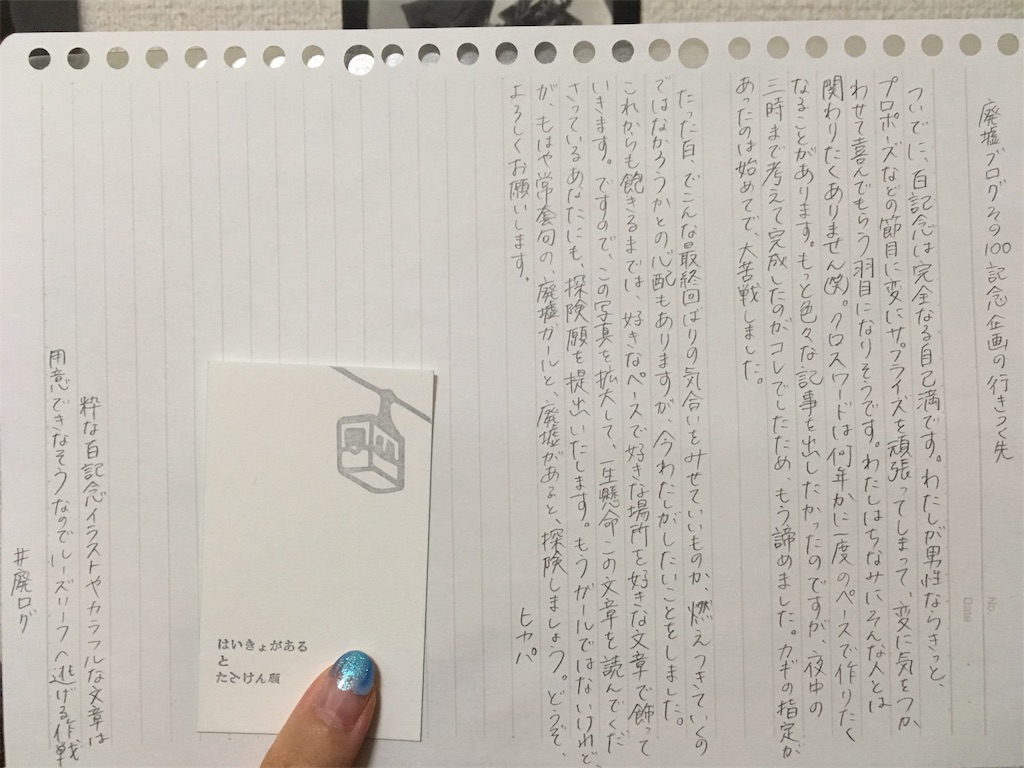 廃墟ブログその100記念企画の行きつく先
ついでに、百記念は完全なる自己満です。わたしが男性ならきっと、
プロポーズなどの節目に変にサプライズを頑張ってしまって、変に気をつか
わせて喜んでもらう羽目になりそうです。わたしはちなみにそんな人とは
関わりたくありません(笑)。クロスワードは何年かに一度のペースで作りたく
なることがあります。もっと色々な記事を出したかったのですが、夜中の
三時まで考えて完成したのがコレでしたため、もう諦めました。カギの指定が
あったのは始めてで、大苦戦しました。
たった百、でこんな最終回ばりの気合いをみせていいものか、燃えつきていくの
ではなかろうかとの心配もありますが、今わたしがしたいことをしました。
これからも飽きるまでは、好きなペースで好きな場所を好きな文章で飾って
いきます。ですので、この写真を拡大して、一生懸命この文章を読んでくだ
さっているあなたにも、探険願を提出いたします。もうガールではないけれど、
が、もはや常套句の、廃墟ガールと、廃墟があると、探険しましょう。どうぞ、
よろしくお願いします。
ヒカパ
粋な百記念イラストやカラフルな文章は
用意できなそうなのでルーズリーフへ逃げる作戦
#廃ログ
はいきょがある
と
たんけん願
No.
Date